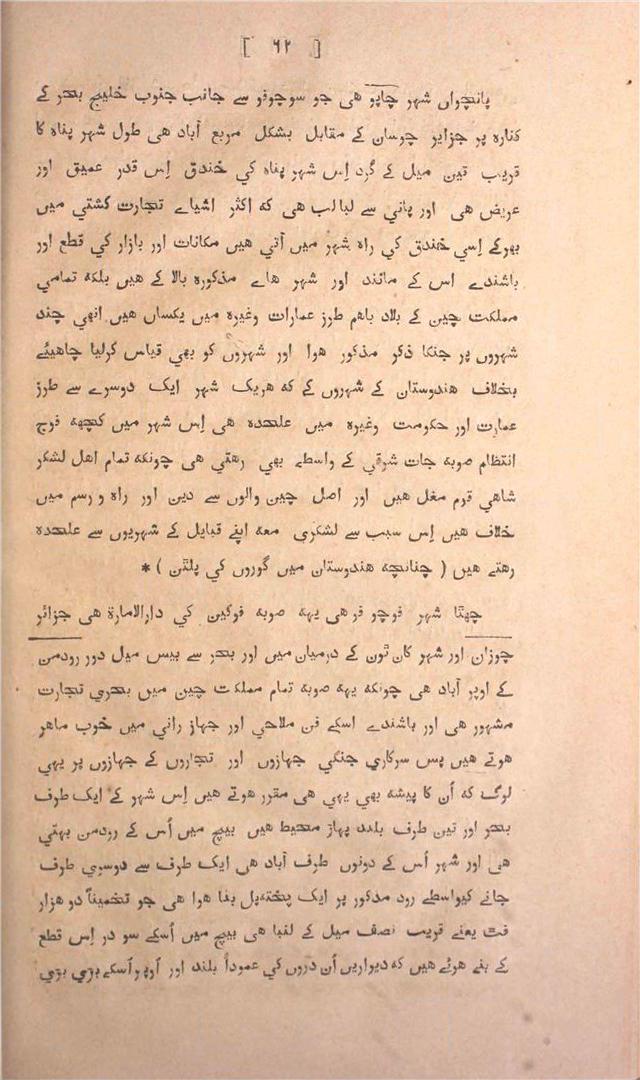 [ ٦٢ ]
پانچواں شہر چاپو هی جو سوچوفو سے جانب جنوب خلیج بحر کے
کنارہ پر جزایر چوسان کے مقابل بشکل مربع آباد هی طول شہر پناہ کا
قریب تین میل کے گرد اِس شہر پناہ کي خندق اِس قدر عمیق اور
عریض هی اور پانی سے لبالب هی کہ اکثر اشیاے تجارت کشتي میں
بھرکے اِسي خندق کي راہ شہر میں آتي هیں مکانات اور بازار کي قطع اور
باشندے اس کے مانند اور شہر هاے مذکورہ بالا کے هیں بلکہ تمامي
مملکت چین کے بلاد باهم طرز عمارات وغیرہ میں یکساں هیں انهی چند
شہروں پر جنکا ذکر مذکور هوا اور شہروں کو بھي قیاس کرلیا چاهیئے
بخلاف هندوستان کے شہروں کے کہ هریک شہر ایک دوسرے سے طرز
عمارت اور حکومت وغیرہ میں علحدہ هی اِس شہر میں کچھہ فوج
انتظام صوبہ جات شرقي کے واسطے بھي رهتي هی چونکہ تمام اهل لشکر
شاهي قوم مغل هیں اور اصل چین والوں سے دین اور راہ و رسم میں
خلاف هیں اِس سبب سے لشکري معہ اپنے قبایل کے شہریوں سے علحدہ
رهتے هیں ( چنانچہ هندوستان میں گوروں کي پلٹن ) *
چھٹا شہر فوچو فو هی یہہ صوبہ فوکین کي دارالامارة هی جزائر
چوزان اور شہر کان ٹون کے درمیان میں اور بحر سے بیس میل دور رودمن
کے اوپر آباد هی چونکہ یہہ صوبہ تمام مملکت چین میں بحري تجارت
مشہور هی اور باشندے اسکے فن ملاحي اور جہاز راني میں خوب ماهر
هوتے هیں پس سرکاري جنگي جہازوں اور تجاروں کے جہازوں پر یہي
لوگ کہ اُن کا پیشہ بھي یہي هی مقرر هوتے هیں اِس شہر کے ایک طرف
بحر اور تین طرف بلند پہاڑ محیط هیں بیچ میں اُس کے رودمن بہتي
هی اور شہر اُس کے دونوں طرف آباد هی ایک طرف سے دوسري طرف
جانے کیواسطے رود مذکور پر ایک پختہ پل بنا هوا هی جو تخمیناً دو هزار
فٹ یعنے قریب نصف میل کے لنبا هی بیچ میں اُسکے سو در اِس قطع
کے بنے هوئے هیں کہ دیواریں اُن دروں کي عموداً بلند اور اُوپر اُسکے بڑي بڑي